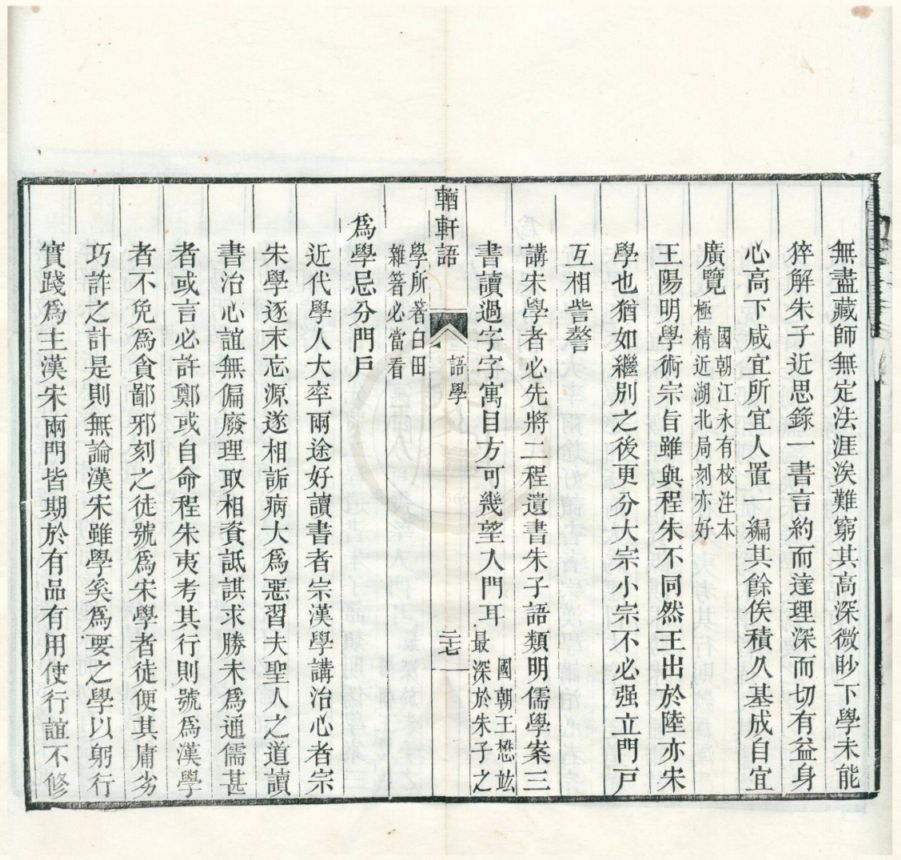 無盡藏師無定法涯涘難窮其高深微眇下學未能
猝解朱子近思錄一書言約而達理深而切有益身
心高下咸宜所宜人置一編其餘俟積久基成自宜
廣覽國朝江永有校注本極精近湖北局刻亦好
王陽明學術宗旨雖與程朱不同然王出於陸亦宋
學也猶如繼別之後更分大宗小宗不必强立門戶
互相訾謷
講宋學者必先將二程遺書朱子語類明儒學案三
書讀過字字寓目方可幾望入門耳國朝王懋竑最深於朱子之
學所著白田雜箸必當看
輶軒語
語學
二七
爲學忌分門戶
近代學人大率兩途好讀書者宗漢學講治心者宗
宋學逐末忘源遂相詬病大爲惡習夫聖人之道讀
書治心誼無偏廢理取相資詆諆求勝未爲通儒甚
者或言必許鄭或自命程朱夷考其行則號爲漢學
者不免爲貪鄙邪刻之徒號爲宋學者徒便其庸劣
巧詐之計是則無論漢宋雖學奚爲要之學以躬行
實踐爲主漢宋兩門皆期於有品有用使行誼不修